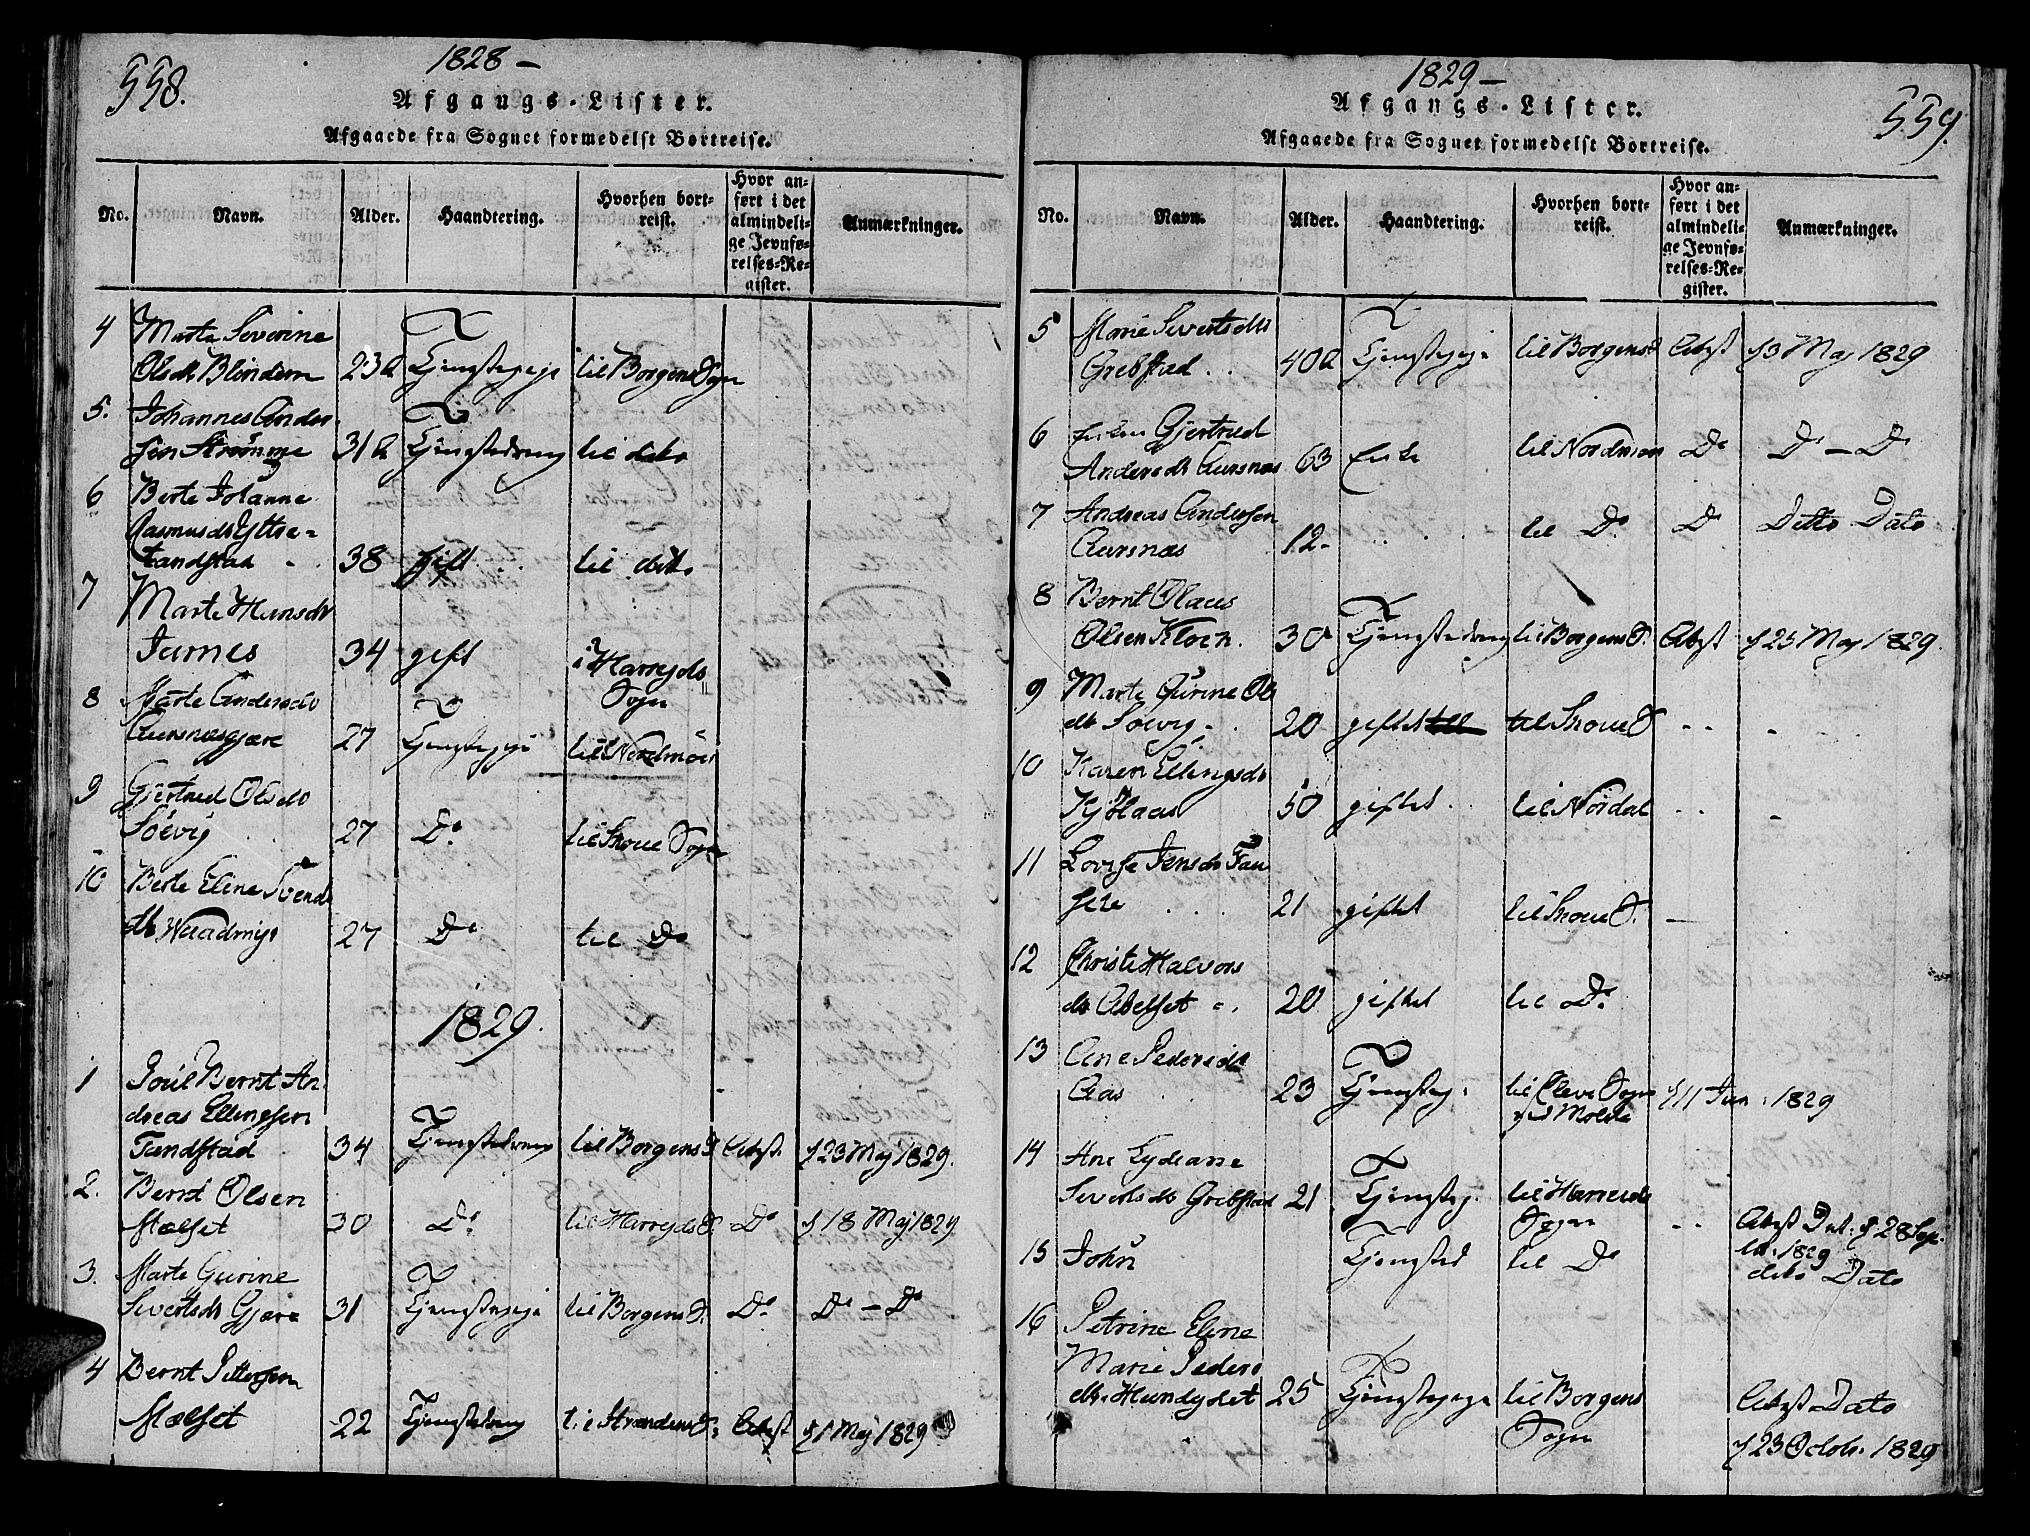 558.
1828 —
Afgangs-Lister.
Afgaaede fra Sognet formedelst Bortreise.
No. Navn. Alder. Haandtering. Hvorhen bortreist. Hvor anført i det almindelige Jevnførelses-Register. Anmærkninger.
4 Marte Severine
Olsdr Blindem 23 Tjenstepige til Borgens Sogn
5. Johannes Ander
sen Strømme 31 Tjenstedreng til dito
6 Berte Johanne
Rasmusdr Yttre-
tandstad 38 gift til dito
7 Marte Hansdr
James 34 gift i Harreyds
Sogn
8 Marte Andersdr
Aursnesgjære 27 Tjenstepige til Nordmør
9 Gjertrud Olsdr
Søevig 27 Do til Skoue Sogn
10 Berte Eline Svends
dr 27 Do til Do
1829.
1 Poul Bernt An
dreas Ellingsen
Tandstad 34 Tjenstedreng til Borgens S Attest. 23 Maj 1829.
2. Bernt Olsen
Mælset 30 Do til Harreyds S. Do 18 Maj 1829
3. Marte Gurine
Sivertsdr Gjære 31 Tjenstepige til Borgens S. Do Do — Do
4 Bernt Pettersen
Mælset 22 Tjenstedreng til Strandens S: Attest 1 Maj 1829
559.
1829 —
Afgangs-Lister.
Afgaaede fra Sognet formedelst Bortreise.
No. Navn. Alder. Haandtering. Hvorhen bortreist. Hvor anført i det almindelige Jevnførelses-Register. Anmærkninger.
5 Marie Sivertsdtr
Grebstad . . 40 Tjenstepige til Borgens S Attest 3 Maj 1829
6 Enken Gjertrud
Andersdr Aursnæs 63 Enke til Nordmør Do Do — Do
7 Andreas Andersen
Aursnæs 12- til Do Do Ditto Dato
8 Bernt Olaus
Olsen Kloch. 30 Tjenstedreng til Borgens S. Attest 25 Maj 1829.
9 Marte Gurine Ols
dr Søevig . 20 giftet til Skoue S - -
10 Karen Ellingsdr
50 giftet til Nordal - -
11 Lovise Jensdr Fau
ske 21 giftet til Skoue S. -
12 Christi Halvors
dr Abelset 20 giftet til Do
13 Ane Pedersdr
Aas 23 Tjenstep: til Sogn
ved Molde 11 Jun: 1829
14 Ane
Sivertsdr Grebstad 21 Tjenstep. til Harreids
Sogn - - Attest Dat. 28 Sep
tbr. 1829
15 John Tjensted til Do dito Dato
16 Petrine Eline
Marie Peders
dtr Hundeydet 25 Tjenstepige til Borgens
Sogn Attest Dato
23 Octobr. 1829